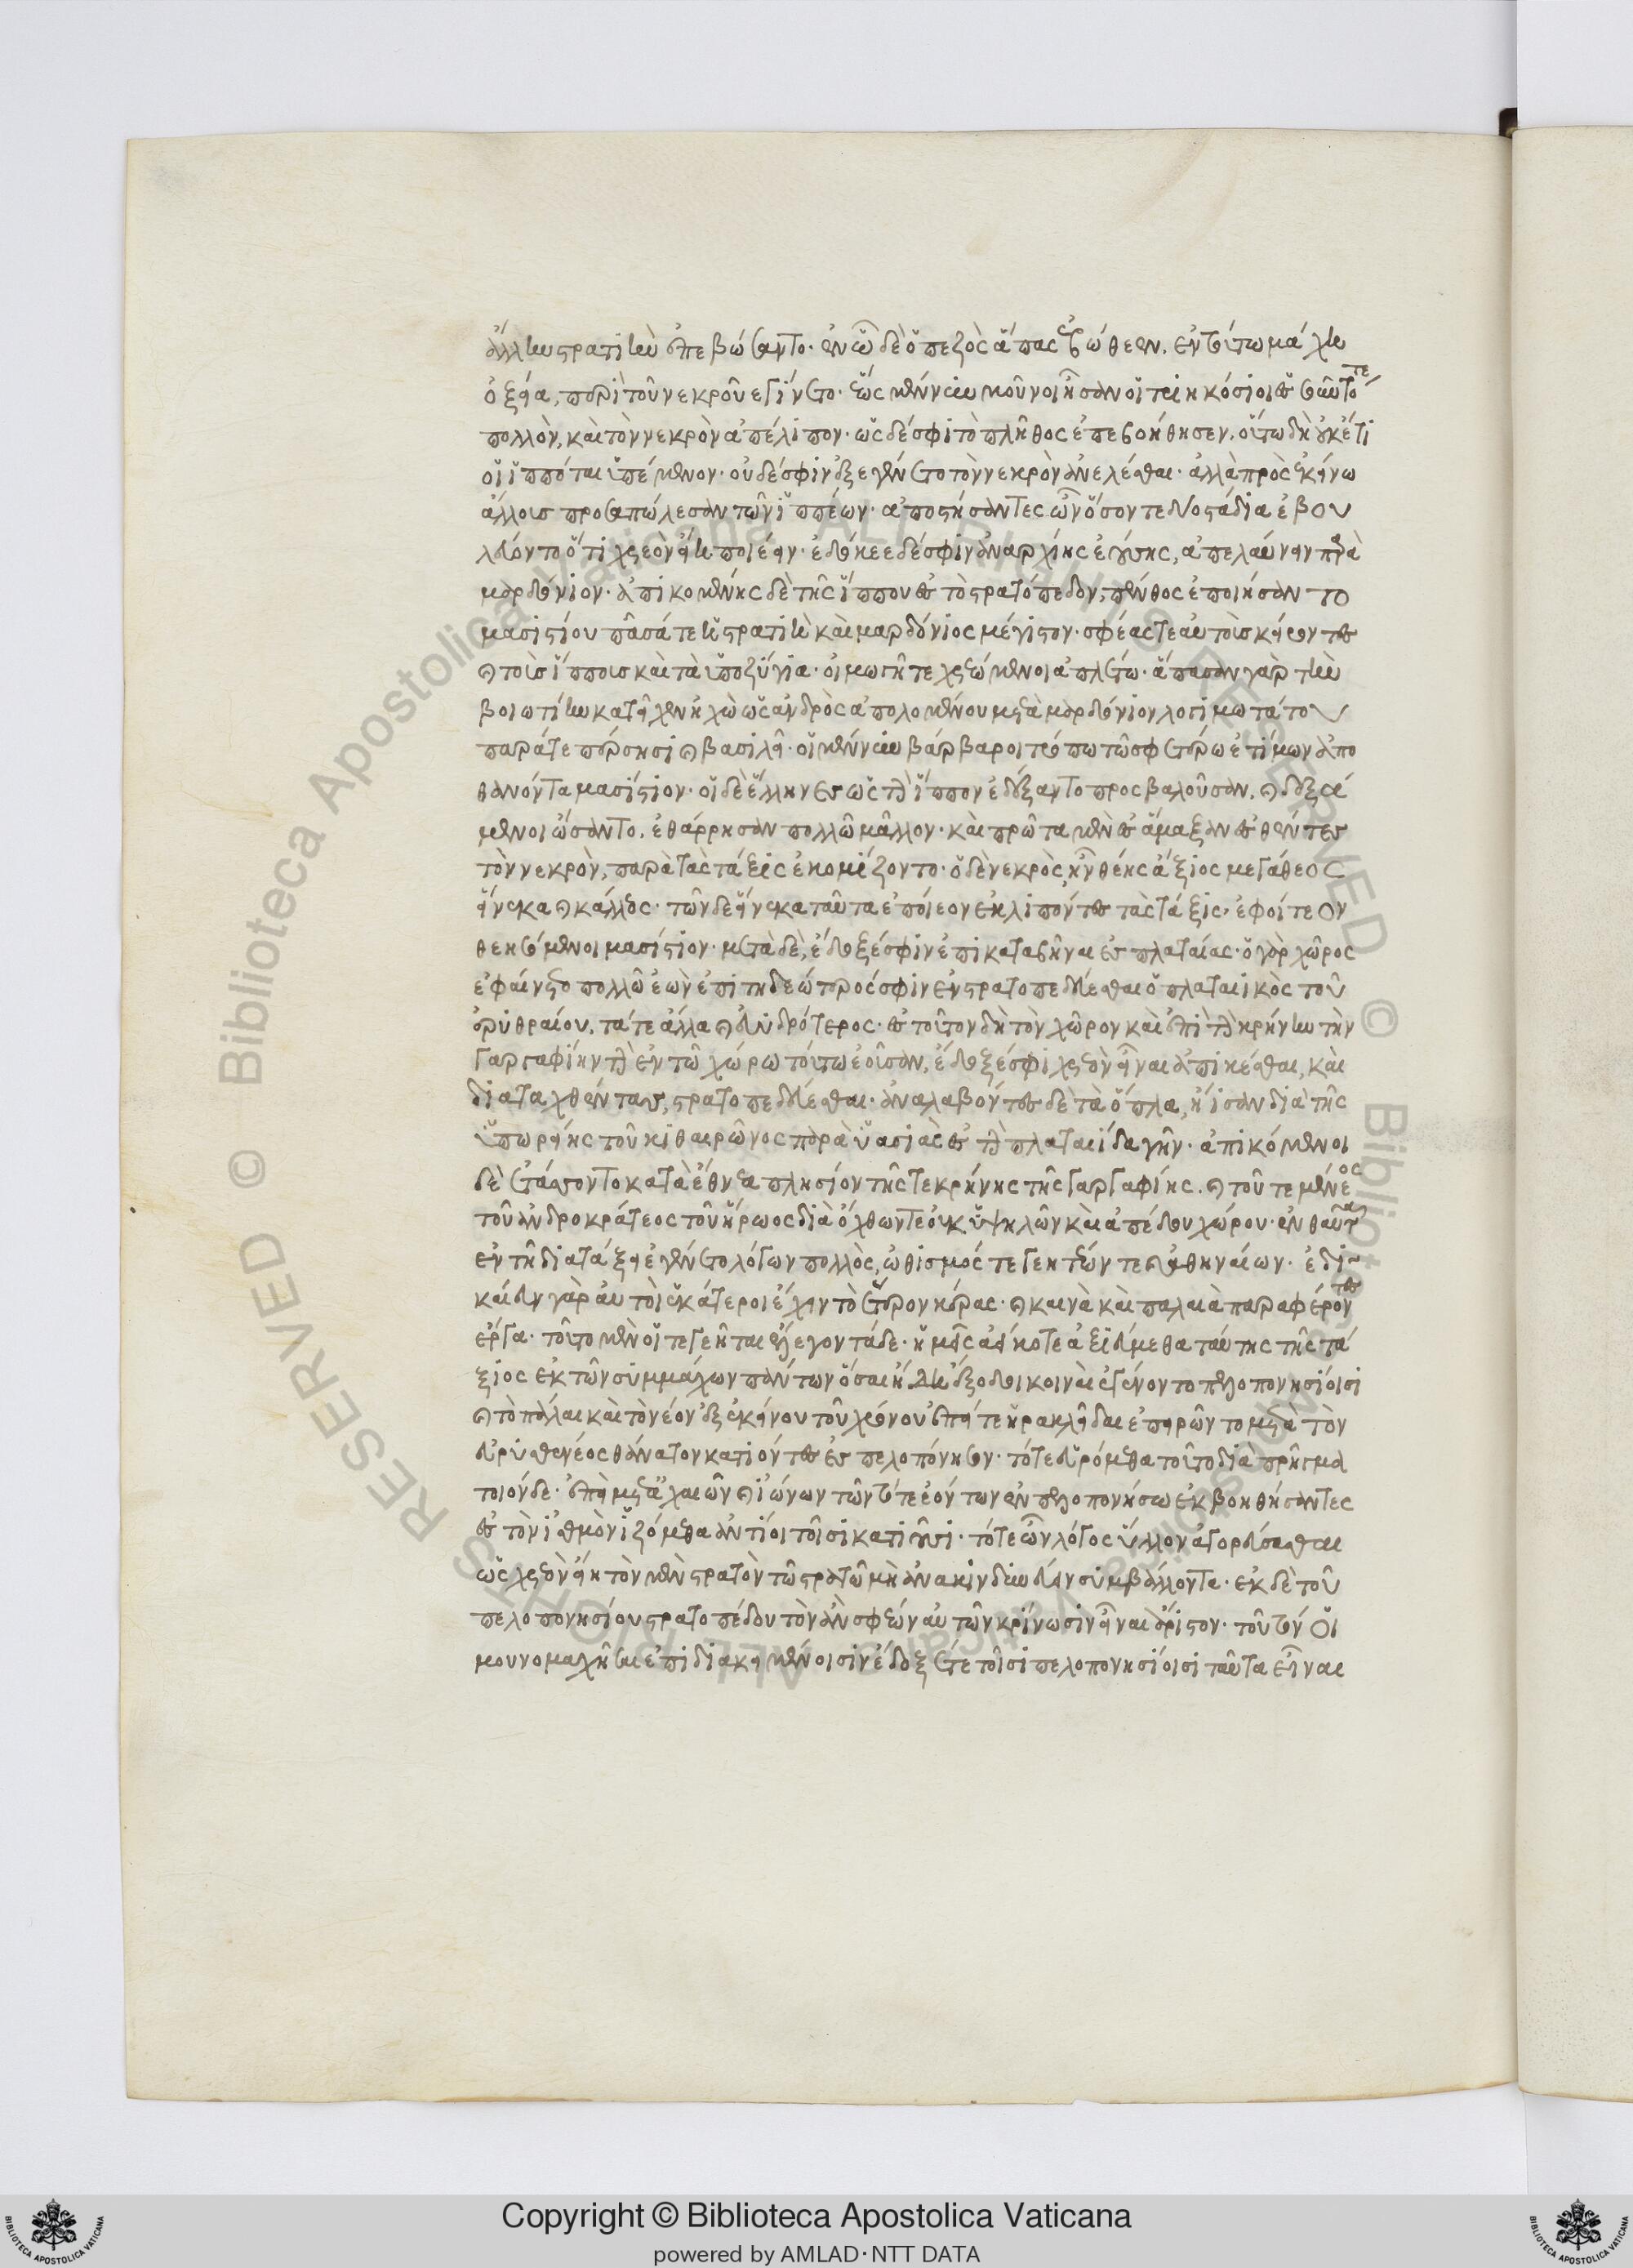 ἄλλην στρατιὴν ἐπεβώσαντο· ἐν ᾧ δὲ ὁ πεζὸς ἅπας ἐβώθεεν, ἐν τούτω μάχη
ὀξεία, περὶ τοῦ νεκροῦ ἐγίνετο· ἕως μέν νυν μοῦνοι ἦσαν οἱ τριηκόσιοι ἑσσοῦντό τε
πολλὸν, καὶ τὸν νεκρὸν ἀπέλιπον· ὡς δέ σφι τὸ πλῆθος ἐπεβοήθησεν, οὕτω δὴ οὐκέτι
οἱ ἱππόται ὑπέμενον· οὐδέ σφιν ἐξεγένετο τὸν νεκρὸν ἀνελέσθαι· ἀλλὰ πρὸς ἐκείνω
ἄλλους προσαπώλεσαν τῶν ἱππέων· ἀποστήσαντες ὦν ὅσον τε δύο στάδια ἐβου
λεύοντο ὅτι χρεὸν εἴη ποιέειν· ἐδόκεε δέ σφιν ἀναρχίης ἐούσης, ἀπελαύνειν παρὰ
μαρδόνιον· ἀπικομένης δὲ τῆς ἵππου ἐς τὸ στρατόπεδον, πένθος ἐποιήσαντο
μασιστίου πᾶσά τε ἡ στρατιὴ καὶ μαρδόνιος μέγιστον· σφέας τε αὐτοὺς κείροντες
καὶ τοὺς ἵππους καὶ τὰ ὑποζύγια· οἰμωγῆ τε χρεώμενοι ἀπλέτω· ἅπασαν γὰρ τὴν
βοιωτίην κατεῖχεν ἠχὼ ὡς ἀνδρὸς ἀπολομένου μετὰ μαρδόνιον λογιμωτάτου
παρά τε πέρσησι καὶ βασιλεῖ· οἱ μέν νυν βάρβαροι τρόπω τῶ σφετέρω ἐτίμων ἀπο
θανόντα μασίστιον· οἱ δὲ ἕλληνες ὡς τὴν ἵππον ἐδέξαντο προσβαλοῦσαν, καὶ δεξά
μενοι ὤσαντο, ἐθάρρησαν πολλῶ μᾶλλον· καὶ πρῶτα μὲν ἐς ἅμαξαν ἐσθέντες
τὸν νεκρὸν, παρὰ τὰς τάξις ἐκομίζοντο· ὁ δὲ νεκρὸς ἦν θέης ἄξιος μεγάθεος
εἵνεκα καὶ κάλλεος· τῶν δὲ εἵνεκα ταῦτα ἐποίεον ἐκλιπόντες τὰς τάξις, ἐφοίτεον
θεησόμενοι μασίστιον· μετὰ δὲ, ἔδοξέ σφιν ἐπικαταβῆναι ἐς πλαταίας· ὁ γὰρ χῶρος
ἐφαίνετο πολλῶ ἐὼν ἐπιτηδεώτερός σφιν ἐνστρατοπεδεύεσθαι ὁ πλαταιικὸς τοῦ
ἐρυθραίου, τά τε ἄλλα καὶ εὐυδρότερος· ἐς τοῦτον δὴ τὸν χῶρον καὶ ἐπὶ τὴν κρήνην τὴν
γαργαφίην τὴν ἐν τῶ χώρω τούτω ἐοῦσαν, ἔδοξέ σφι χρεὸν εἶναι ἀπικέσθαι, καὶ
διαταχθέντας, στρατοπεδεύεσθαι· ἀναλαβόντες δὲ τὰ ὅπλα, ἤισαν διὰ τῆς
ὑπωρείης τοῦ κιθαιρῶνος παρὰ ὑσιὰς ἐς τὴν πλαταιίδα γῆν· ἀπικόμενοι
δὲ ἐτάσσοντο κατὰ ἔθνεα πλησίον τῆς τε κρήνης τῆς γαργαφίης. καὶ τοῦ τεμένεος
τοῦ ἀνδροκράτεος τοῦ ἥρωος διὰ ὄχθων τε οὐκ ὑψηλῶν καὶ ἀπέδου χώρου· ἐνθαῦτα
ἐν τῆ διατάξει ἐγένετο λόγων πολλὸς, ὠθισμός τεγεητέων τε καὶ ἀθηναίων· ἐδι
καίευν γὰρ αὐτοὶ ἑκάτεροι ἔχειν τὸ ἕτερον κέρας· καὶ καινὰ καὶ παλαιὰ παραφέροντες
ἔργα· τοῦτο μὲν οἱ τεγεῆται ἔλεγον τάδε· ἡμεῖς αἰεί κοτε ἀξιεύμεθα ταύτης τῆς τά
ξιος ἐκ τῶν συμμάχων πάντων ὅσαι ἤδη ἔξοδοι κοιναὶ ἐγένοντο πελοποννησίοισι
καὶ τὸ πάλαι καὶ τὸ νέον ἐξ ἐκείνου τοῦ χρόνου ἐπείτε ἡρακλεῖδαι ἐπειρῶντο μετὰ τὸν
εὐρυσθενέος θάνατον κατιόντες ἐς πελοπόνησον· τότε εὑρόμεθα τοῦτο διὰ πρῆγμα
τοιόνδε· ἐπεὶ μετὰ ἀχαιῶν καὶ ἰώνων τῶν τότε ἐόντων ἐν πελοπονήσω ἐκβοηθήσαντες
ἐς τὸν ἰσθμὸν ἱζόμεθα ἀντίοι τοῖσι κατιοῦσι· τότε ὦν λόγος ὕλλον ἀγορεύσασθαι
ὡς χρεὸν εἴη τὸν μὲν στρατὸν τῶ στρατῶ μὴ ἀνακινδυνεύειν συμβάλλοντα· ἐκ δὲ τοῦ
πελοπονησίου στρατοπέδου τὸν ἂν σφέων αὐτῶν κρίνωσιν εἶναι ἄριστον· τοῦτόν οἱ
μουνομαχῆσαι ἐπὶ διακειμένοισιν ἔδοξέ τε τοῖσι πελοπονησίοισι ταῦτα εἶναι
Copyright © Biblioteca Apostolica Vaticana
powered by AMLAD·NTT DATA